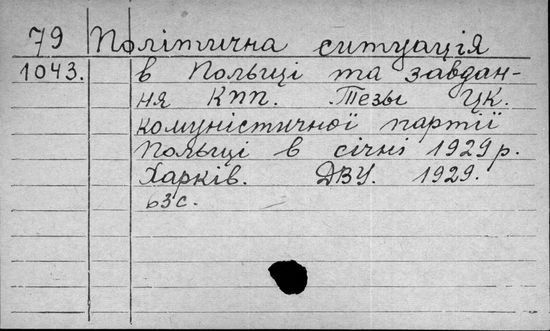 79 Політична ситуація
1043. в Польщі та завдан-
ня КПП. Тезы ЦК.
комуністичної партії
Польщі в січні 1929 р.
Харків. ДВУ. 1929.
63 с.